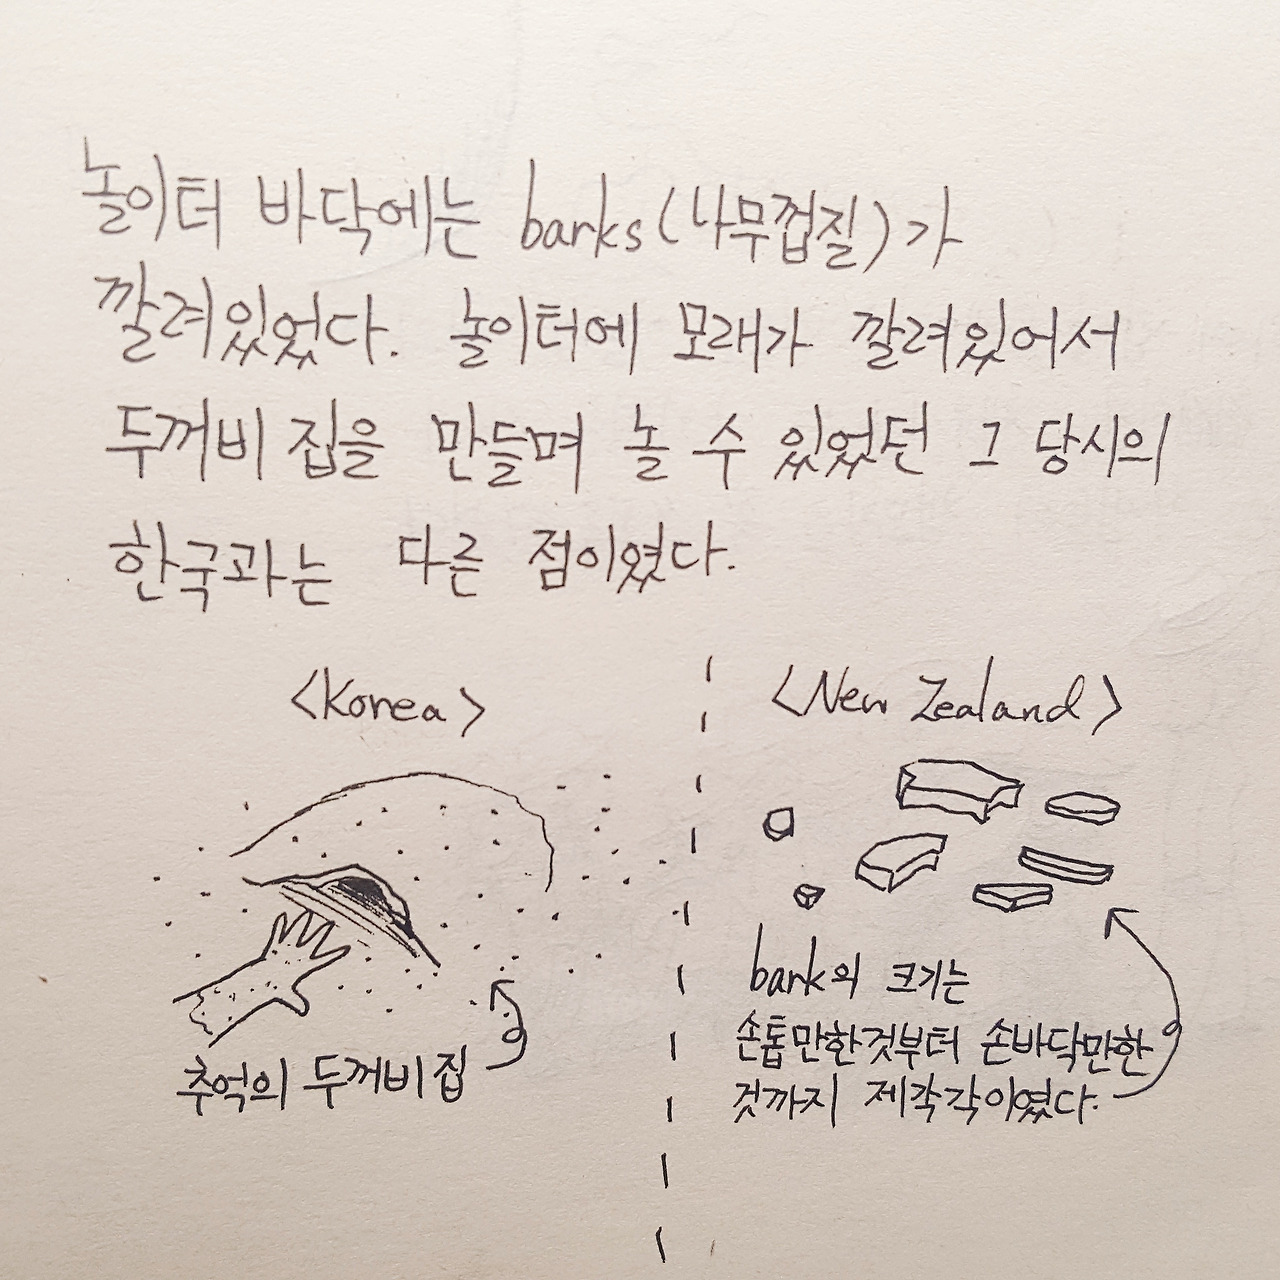 놀이터 바닥에는 barks(나무껍질)가
깔려있었다. 놀이터에 모래가 깔려있어서
두꺼비 집을 만들며 놀 수 있었던 그 당시의
한국과는 다른 점이였다.
<Korea>
추억의 두꺼비 집
<New Zealand>
bark의 크기는
손톱만한것부터 손바닥만한
것까지 제각각이였다.